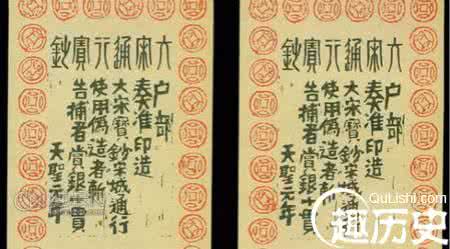 大宋通行寶鈔
户部
奏准印造
大宋寶鈔宋城通行
使用偽造者斬
告捕者賞銀貫
天聖元年
大宋通行寶鈔
户部
奏准印造
大宋寶鈔宋城通
使用偽造者斬
告捕者賞銀十貫
天聖元年
QuLiShi.com
趣历史